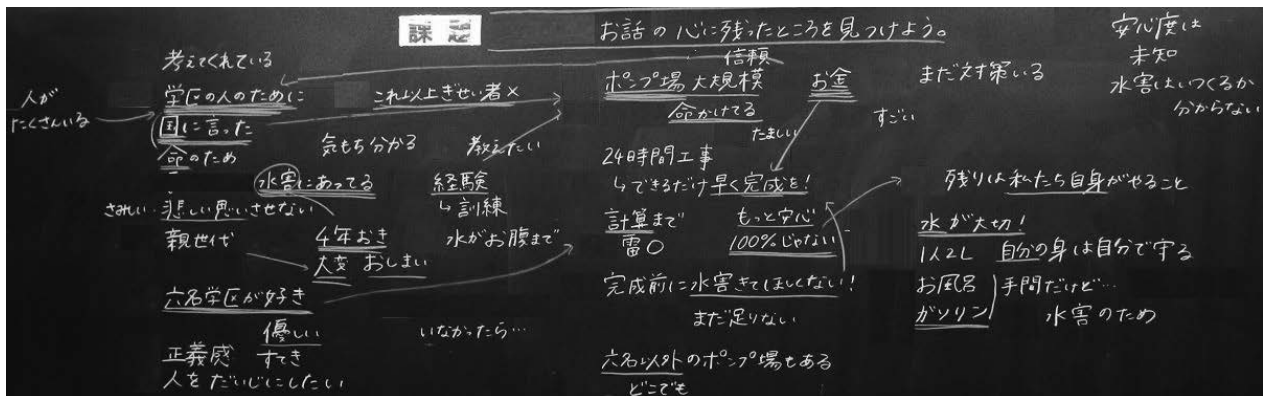 課題
お話の心に残ったところを見つけよう。
考えてくれている
人が
たくさんいる
学区の人のために
国に言った
命のため
これ以上ぎせい者×
気もち分かる
教えたい
水害にあってる
さみしい…悲しい思いさせない
親世代
4年おき
大変 おしまい
経験
↳訓練
水がお腹まで
六名学区が好き
優しい
正義感 すてき
人をだいじにしたい
いなかったら…
信頼
ポンプ場 大規模
命かけてる
お金
たましい
24時間工事
↳できるだけ早く完成を!
計算まで
雷〇
もっと安心
100%じゃない
完成前に水害きてほしくない!
まだ足りない
六名以外のポンプ場もある
どこでも
まだ対策いる
すごい
安心度は
未知
水害はいつくるか
分からない
残りは私たち自身がやること
水が大切!
1人2L 自分の身は自分で守る
お風呂 手間だけど…
ガソリン 水害のため